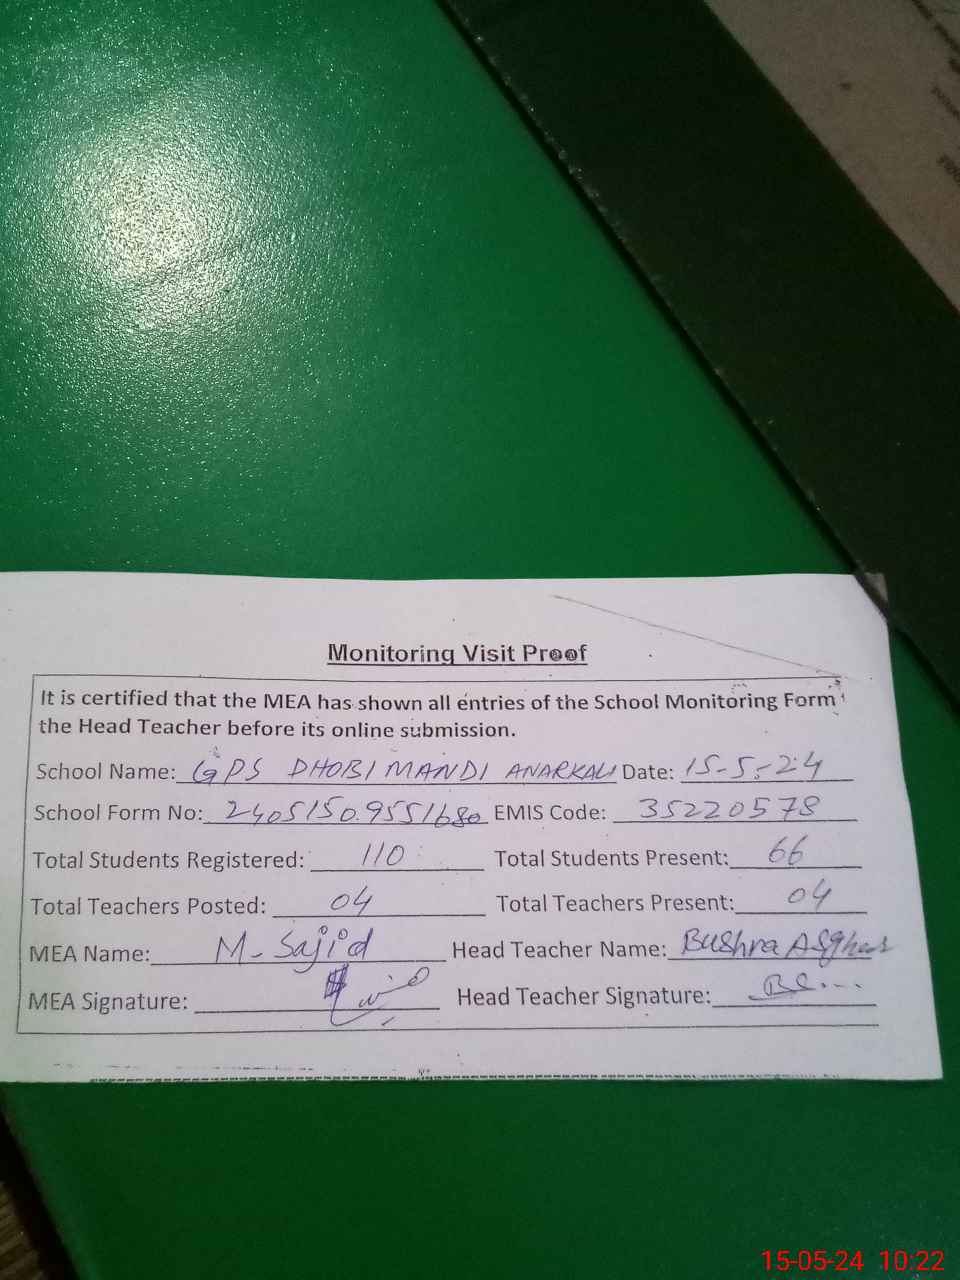 Monitoring Visit Proof
It is certified that the MEA has shown all entries of the School Monitoring Form
the Head Teacher before its online submission.
School Name: GPS DHOBI MANDI ANARKALI Date: 15-5-24
School Form No: 24051509551680 EMIS Code: 35220578
Total Students Registered: 110 Total Students Present: 66
Total Teachers Posted: 04 Total Teachers Present: 04
MEA Name: M-Sajid Head Teacher Name: Bushra Asghar
MEA Signature: Head Teacher Signature:
15-05-24 10:22